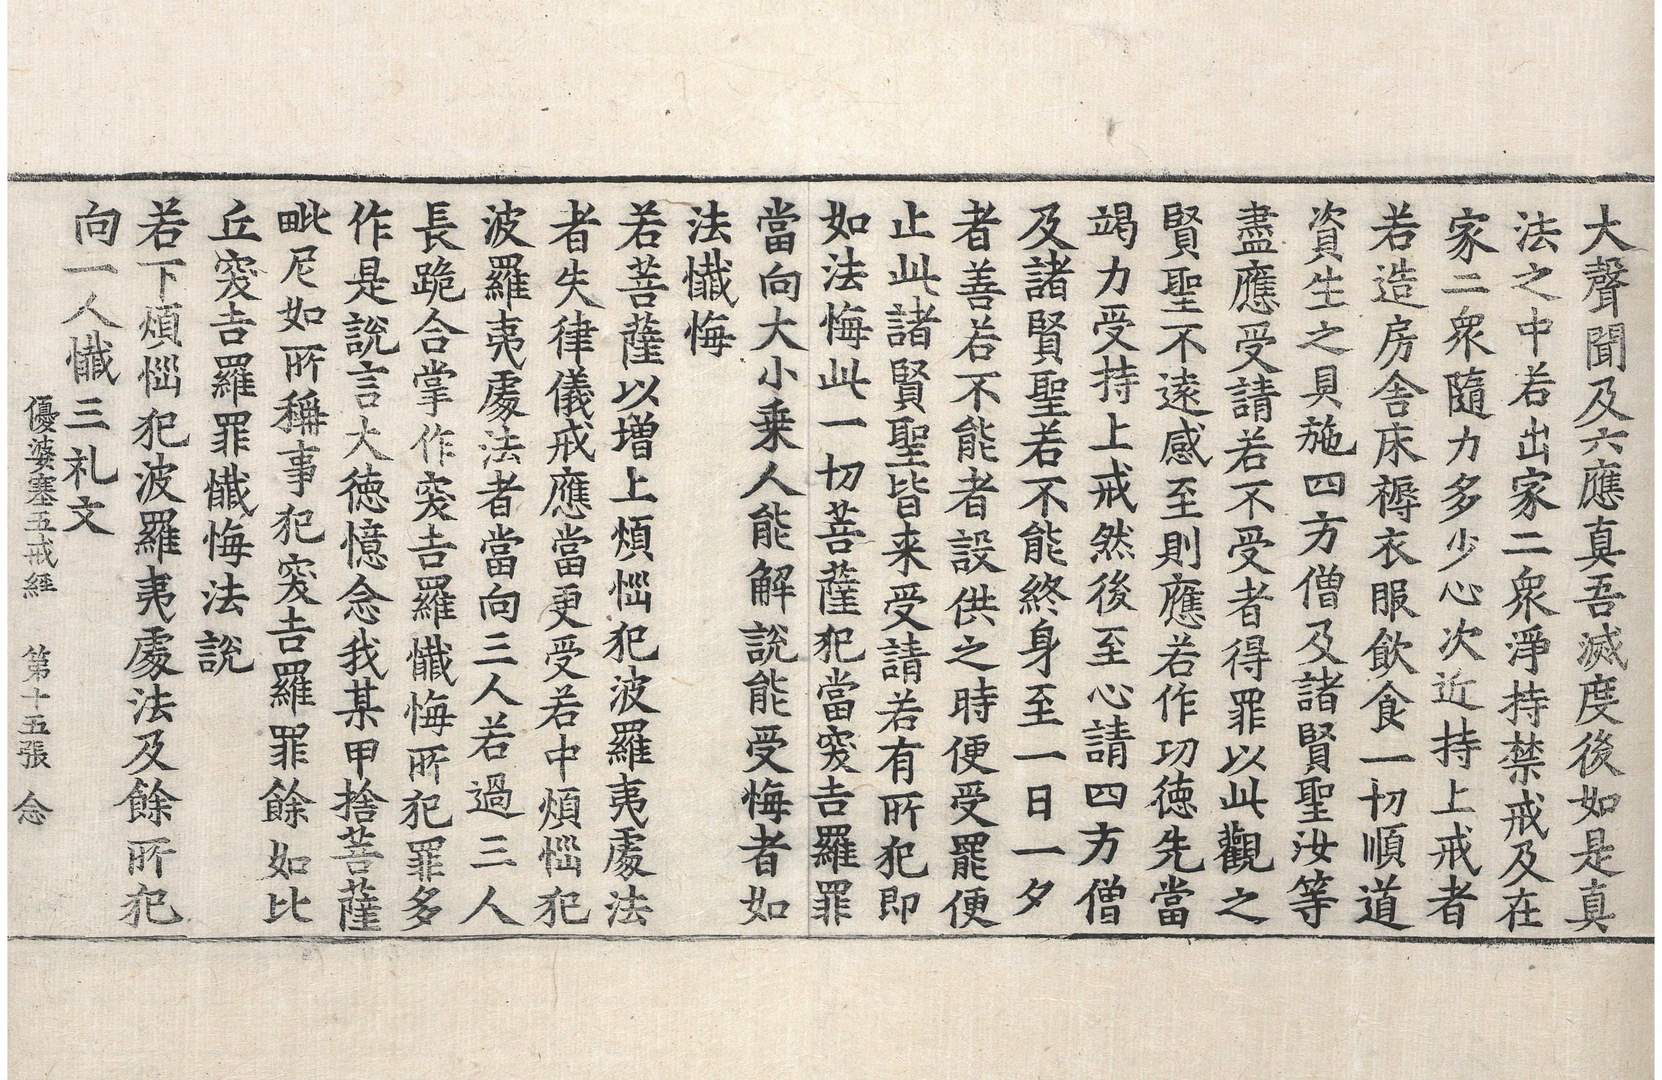 大聲聞及六應真吾滅度後如是真
法之中若出家二衆淨持禁戒及在
家二衆隨力多少心次近持上戒者
若造房舍床褥衣服飲食一切順道
資生之具施四方僧及諸賢聖汝等
盡應受請若不受者得罪以此觀之
賢聖不遠感至則應若作功徳先當
竭力受持上戒然後至心請四方僧
及諸賢聖若不能終身至一日一夕
者善若不能者設供之時便受罷便
止此諸賢聖皆来受請若有所犯即
如法悔此一切菩薩犯當突吉羅罪
當向大小乗人能解說能受悔者如
法懺悔
若菩薩以増上煩惱犯波羅夷處法
者失律儀戒應當更受若中煩惱犯
波羅夷處法者當向三人若過三人
長跪合掌作突吉羅懺悔所犯罪多
作是說言大徳憶念我某甲捨菩薩
毗尼如所稱事犯突吉羅罪餘如比
丘突吉羅罪懺悔法說
若下煩惱犯波羅夷處法及餘所犯
向一人懺三礼文
優婆塞五戒經 第十五張 念